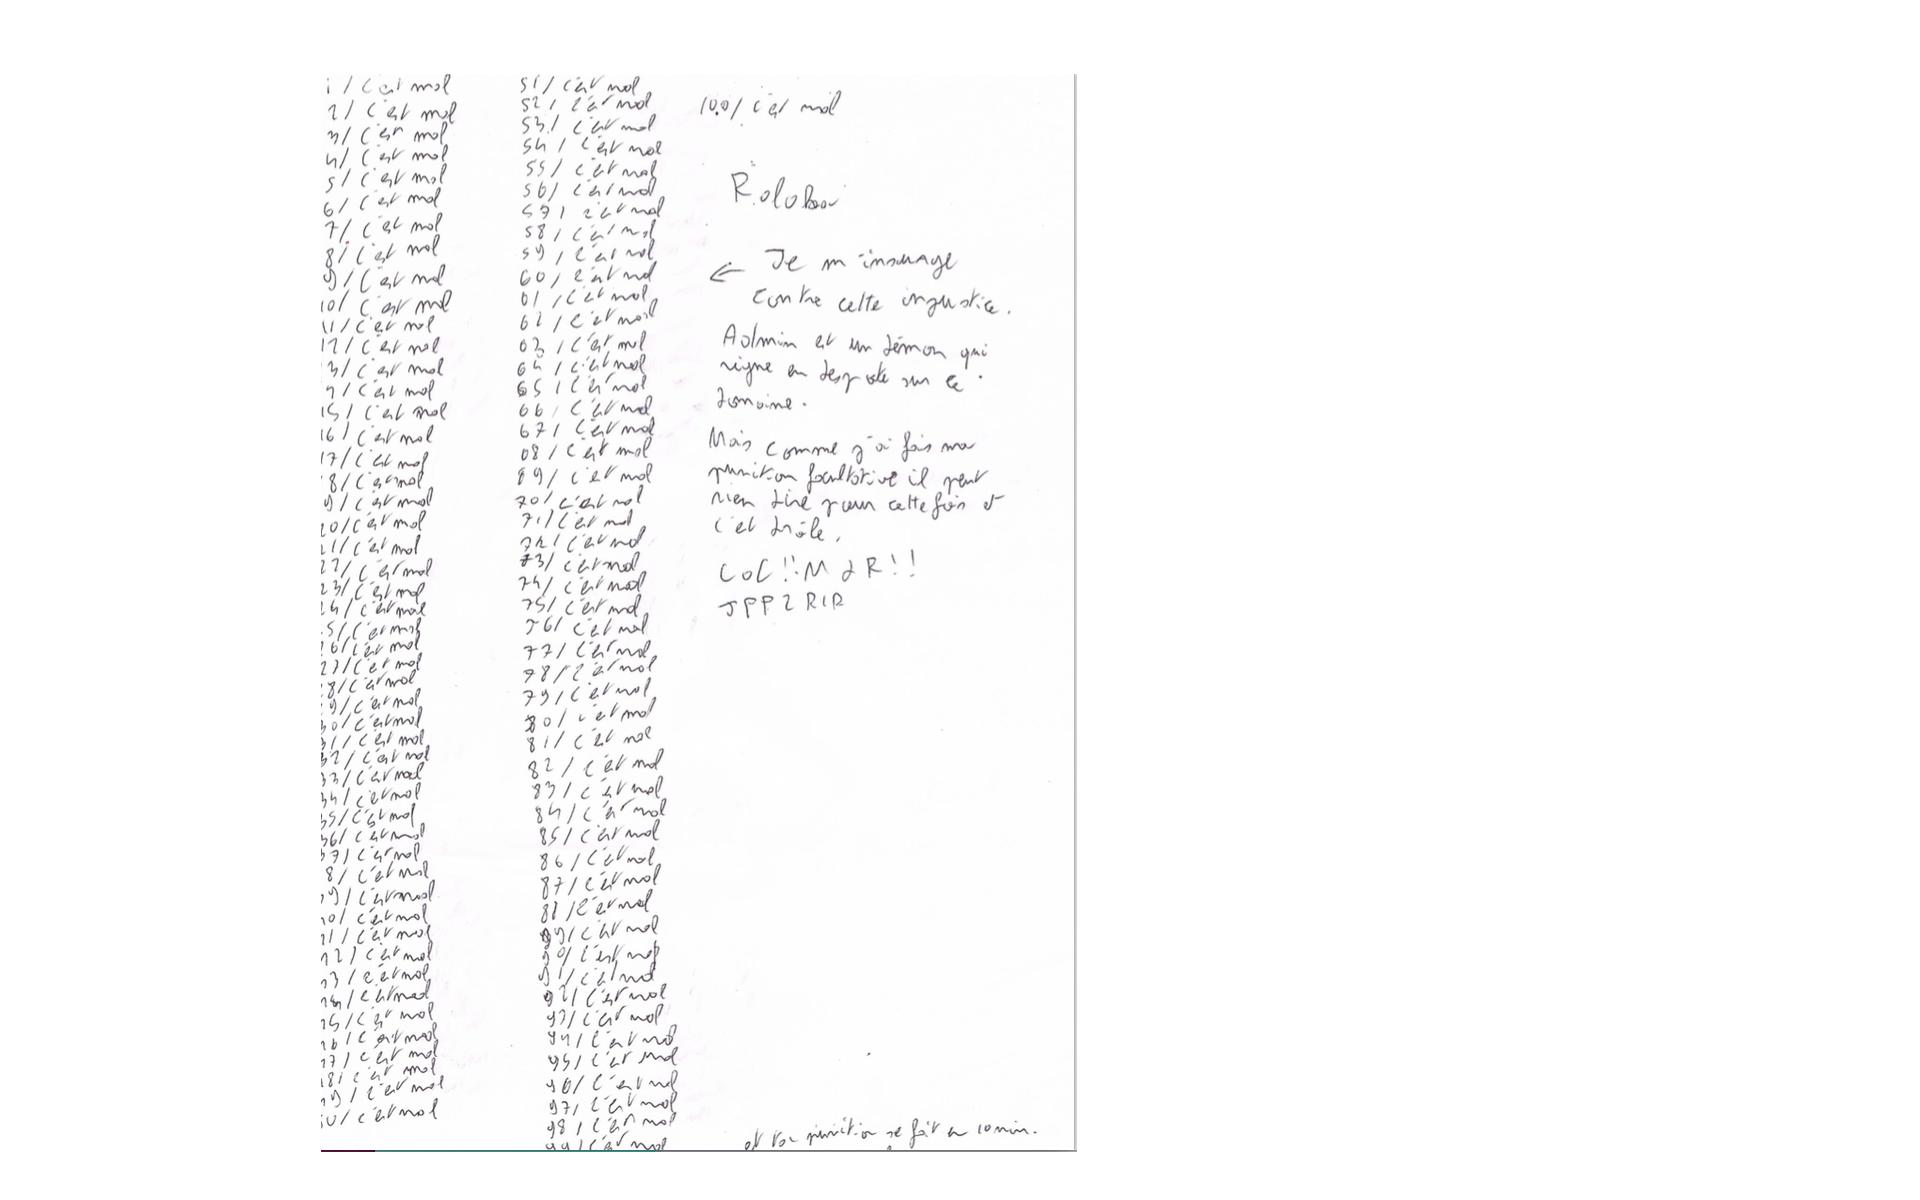 1/ c'est mal
2/ c'est mal
3/ c'est mal
4/ c'est mal
5/ c'est mal
6/ c'est mal
7/ c'est mal
8/ c'est mal
9/ c'est mal
10/ c'est mal
11/ c'est mal
12/ c'est mal
3/ c'est mal
4/ c'est mal
15/ c'est mal
16/ c'est mal
17/ c'est mal
18/ c'est mal
9/ c'est mal
20/ c'est mal
21/ c'est mal
22/ c'est mal
23/ c'est mal
24/ c'est mal
5/ c'est mal
26/ c'est mal
27/ c'est mal
28/ c'est mal
29/ c'est mal
30/ c'est mal
31/ c'est mal
32/ c'est mal
33/ c'est mal
34/ c'est mal
35/ c'est mal
36/ c'est mal
37/ c'est mal
8/ c'est mal
39/ c'est mal
40/ c'est mal
41/ c'est mal
42/ c'est mal
43/ c'est mal
44/ c'est mal
45/ c'est mal
46/ c'est mal
47/ c'est mal
48/ c'est mal
49/ c'est mal
50/ c'est mal
51/ c'est mal
52/ c'est mal
53/ c'est mal
54/ c'est mal
55/ c'est mal
56/ c'est mal
57/ c'est mal
58/ c'est mal
59/ c'est mal
60/ c'est mal
61/ c'est mal
62/ c'est mal
63/ c'est mal
64/ c'est mal
65/ c'est mal
66/ c'est mal
67/ c'est mal
68/ c'est mal
69/ c'est mal
70/ c'est mal
71/ c'est mal
72/ c'est mal
73/ c'est mal
74/ c'est mal
75/ c'est mal
76/ c'est mal
77/ c'est mal
78/ c'est mal
79/ c'est mal
80/ c'est mal
81/ c'est mal
82/ c'est mal
83/ c'est mal
84/ c'est mal
85/ c'est mal
86/ c'est mal
87/ c'est mal
88/ c'est mal
89/ c'est mal
90/ c'est mal
91/ c'est mal
92/ c'est mal
93/ c'est mal
94/ c'est mal
95/ c'est mal
96/ c'est mal
97/ c'est mal
98/ c'est mal
99/ c'est mal
100/ c'est mal
← Je m'insurge
contre cette injustice.
Admin est un démon qui
règne en despote sur ce
domaine.
Mais comme j'ai fais ma
punition facultative il peut
rien dire pour cette fois et
c'est drôle.
LOL!! MDR!!
JPP2 RIP
et ta punition se fait en 10 min.